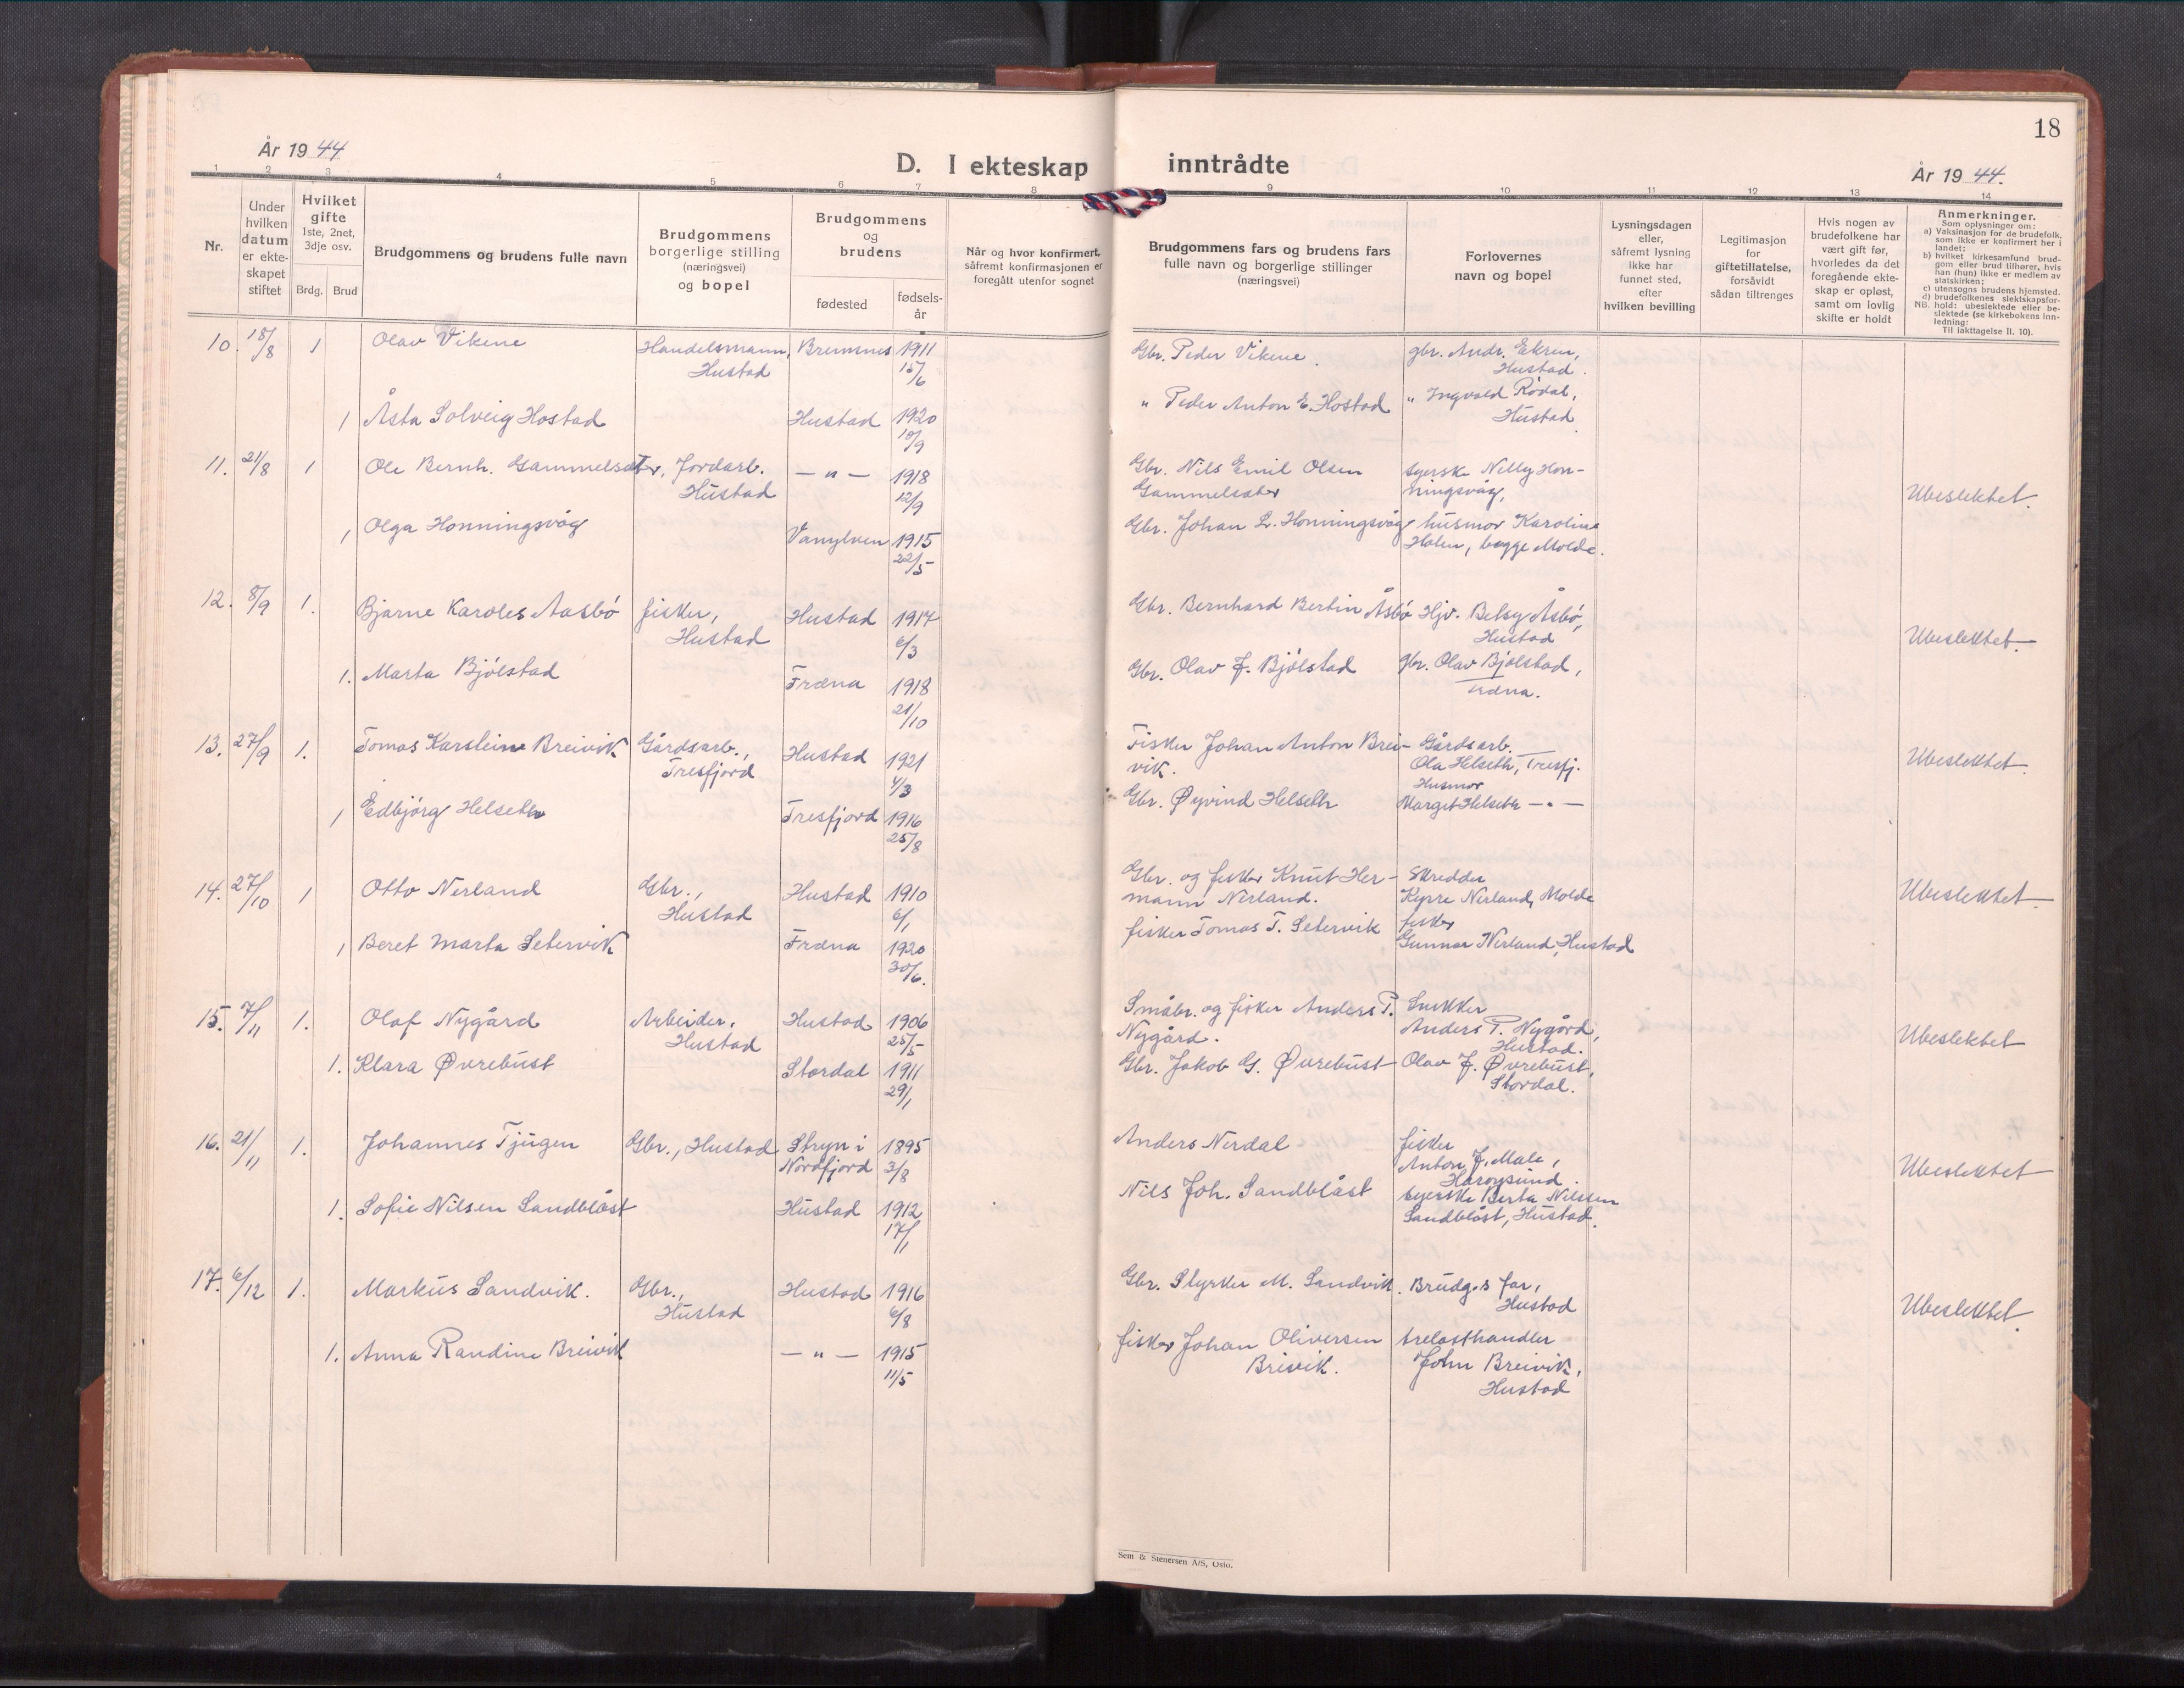 18
År 19 44
D. I ekteskap inntrådte
År 19 44.
1 2 3 4 5 6 7 8 9 10 11 12 13 14
Nr.
Under
hvilken
datum
er ekte-
skapet
stiftet
Hvilket
gifte
1ste, 2net,
3dje osv.
Brdg. Brud
Brudgommens og brudens fulle navn
Brudgommens
borgerlige stilling
(næringsvei)
og bopel
Brudgommens
og
brudens
fødested
fødsels-
år
Når og hvor konfirmert,
såfremt konfirmasjonen er
foregått utenfor sognet
Brudgommens fars og brudens fars
fulle navn og borgerlige stillinger
(næringsvei)
Forlovernes
navn og bopel
Lysningsdagen
eller,
såfremt lysning
ikke har
funnet sted,
efter
hvilken bevilling
Legitimasjon
for
giftetillatelse,
forsåvidt
sådan tiltrenges
Hvis nogen av
brudefolkene har
vært gift før,
hvorledes da det
foregående ekte-
skap er opløst,
samt om lovlig
skifte er holdt
Anmerkninger.
Som oplysninger om:
a) Vaksinasjon for de brudefolk,
som ikke er konfirmert her i
landet;
b) hvilket kirkesamfund brud-
gom eller brud tilhører, hvis
han (hun) ikke er medlem av
statskirken;
c) utensogns brudens hjemsted.
d) brudefolkenes slektskapsfor-
NB. hold: ubeslektede eller be-
slektede (se kirkebokens inn-
ledning:
Til iakttagelse II. 10).
10. 18/8 1 Olav Vikene Handelsmann, Bremsnes 1911 Gbr. Peder Vikene. gbr. Andr. Ekren,
Hustad 15/6 Hustad.
1 Åsta Solveig Hostad Hustad 1920 " Peder Anton E. Hostad " Ingvald Rødal,
10/9 Hustad
11. 21/8 1 Ole Bernh. Gammelsæter, Jordarb. — " — 1918 Gbr. Nils Emil Olsen syerske Nelly Hon-
Hustad 12/9 Gammelsæter ningsvåg, Ubeslektet.
1 Olga Honningsvåg Vanylven 1915 Gbr. Johan L. Honningsvåg husmor Karoline
22/5 Holen, begge Molde.
12. 8/9 1. Bjarne Karoles Aasbö fisker, Hustad 1917 Gbr. Bernhard Bertin Åsbö Hjv. Betsy Åsbö,
Hustad 6/3 Hustad Ubeslektet.
1. Marta Bjölstad Fræna 1918 Gbr. Olav J. Bjölstad gbr. Olav Bjölstad,
21/10 Fræna.
13. 27/9 1. Tomas Karsteine Breivik Gårdsarb., Hustad 1921 Fisker Johan Anton Brei- Gårdsarb.
Tresfjord 4/3 vik. Ola Helseth, Tresfj. Ubeslektet.
Husmor
1 Edbjörg Helseth Tresfjord 1916 Gbr. Øyvind Helseth Margit Helseth — " —
25/8
14. 27/10 1 Otto Nerland Gbr., Hustad 1910 Gbr. og fisker Knut Her- Skredder
Hustad 6/1 mann Nerland. Kyrre Nerland, Molde Ubeslektet.
1 Beret Marta Setervik Fræna 1920 fisker Tomas T. Setervik fisker
30/6. Gunnar Nerland, Hustad
15. 7/11 1. Olaf Nygård Arbeider, Hustad 1906 Småbr. og fisker Anders P. Snekker
Hustad 25/5 Nygård. Anders P. Nygård, Ubeslektet
Hustad.
1. Klara Øvrebust Stordal 1911 Gbr. Jakob G. Øvrebust Olav J. Øvrebust,
29/1 Stordal.
16. 21/11 1. Johannes Tjugen Gbr., Hustad Stryn i 1895 Anders Nerdal fisker
Nordfjord 3/8 Anton J. Male, Ubeslektet
Harøysund.
1. Sofie Nilsen Sandblåst Hustad 1912 Nils Joh. Sandblåst syerske Berta Nilssen
17/1 Sandblåst, Hustad.
17. 6/12 1. Markus Sandvik. Gbr., Hustad 1916 Gbr. Styrker M. Sandvik. Brudg.s far,
Hustad 6/8 Hustad Ubeslektet.
1. Anna Randine Breivik — " — 1915 fisker Johan Oliversen trelasthandler
11/5 Breivik. John Breivik,
Hustad
Sem & Stenersen A/S, Oslo.